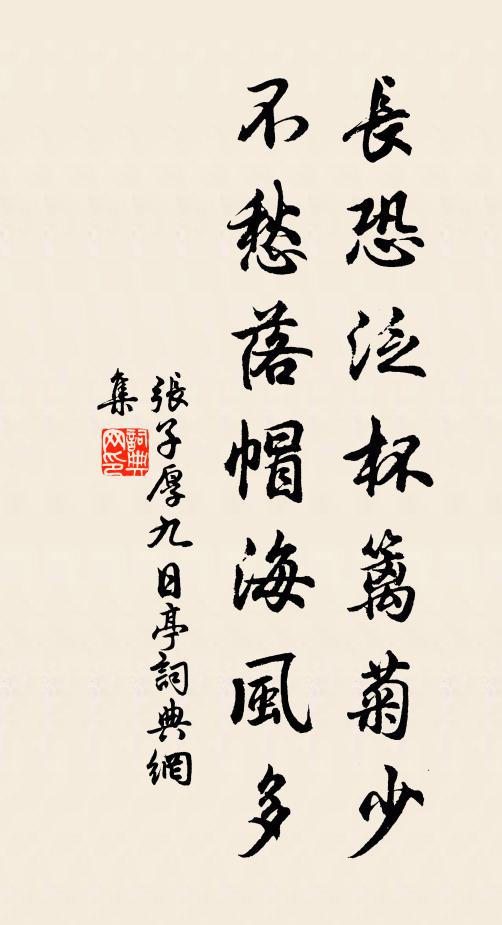 長恐泛杯籬菊少
不愁落帽海風多
張子厚九日亭詞典網
集
詞典
网印